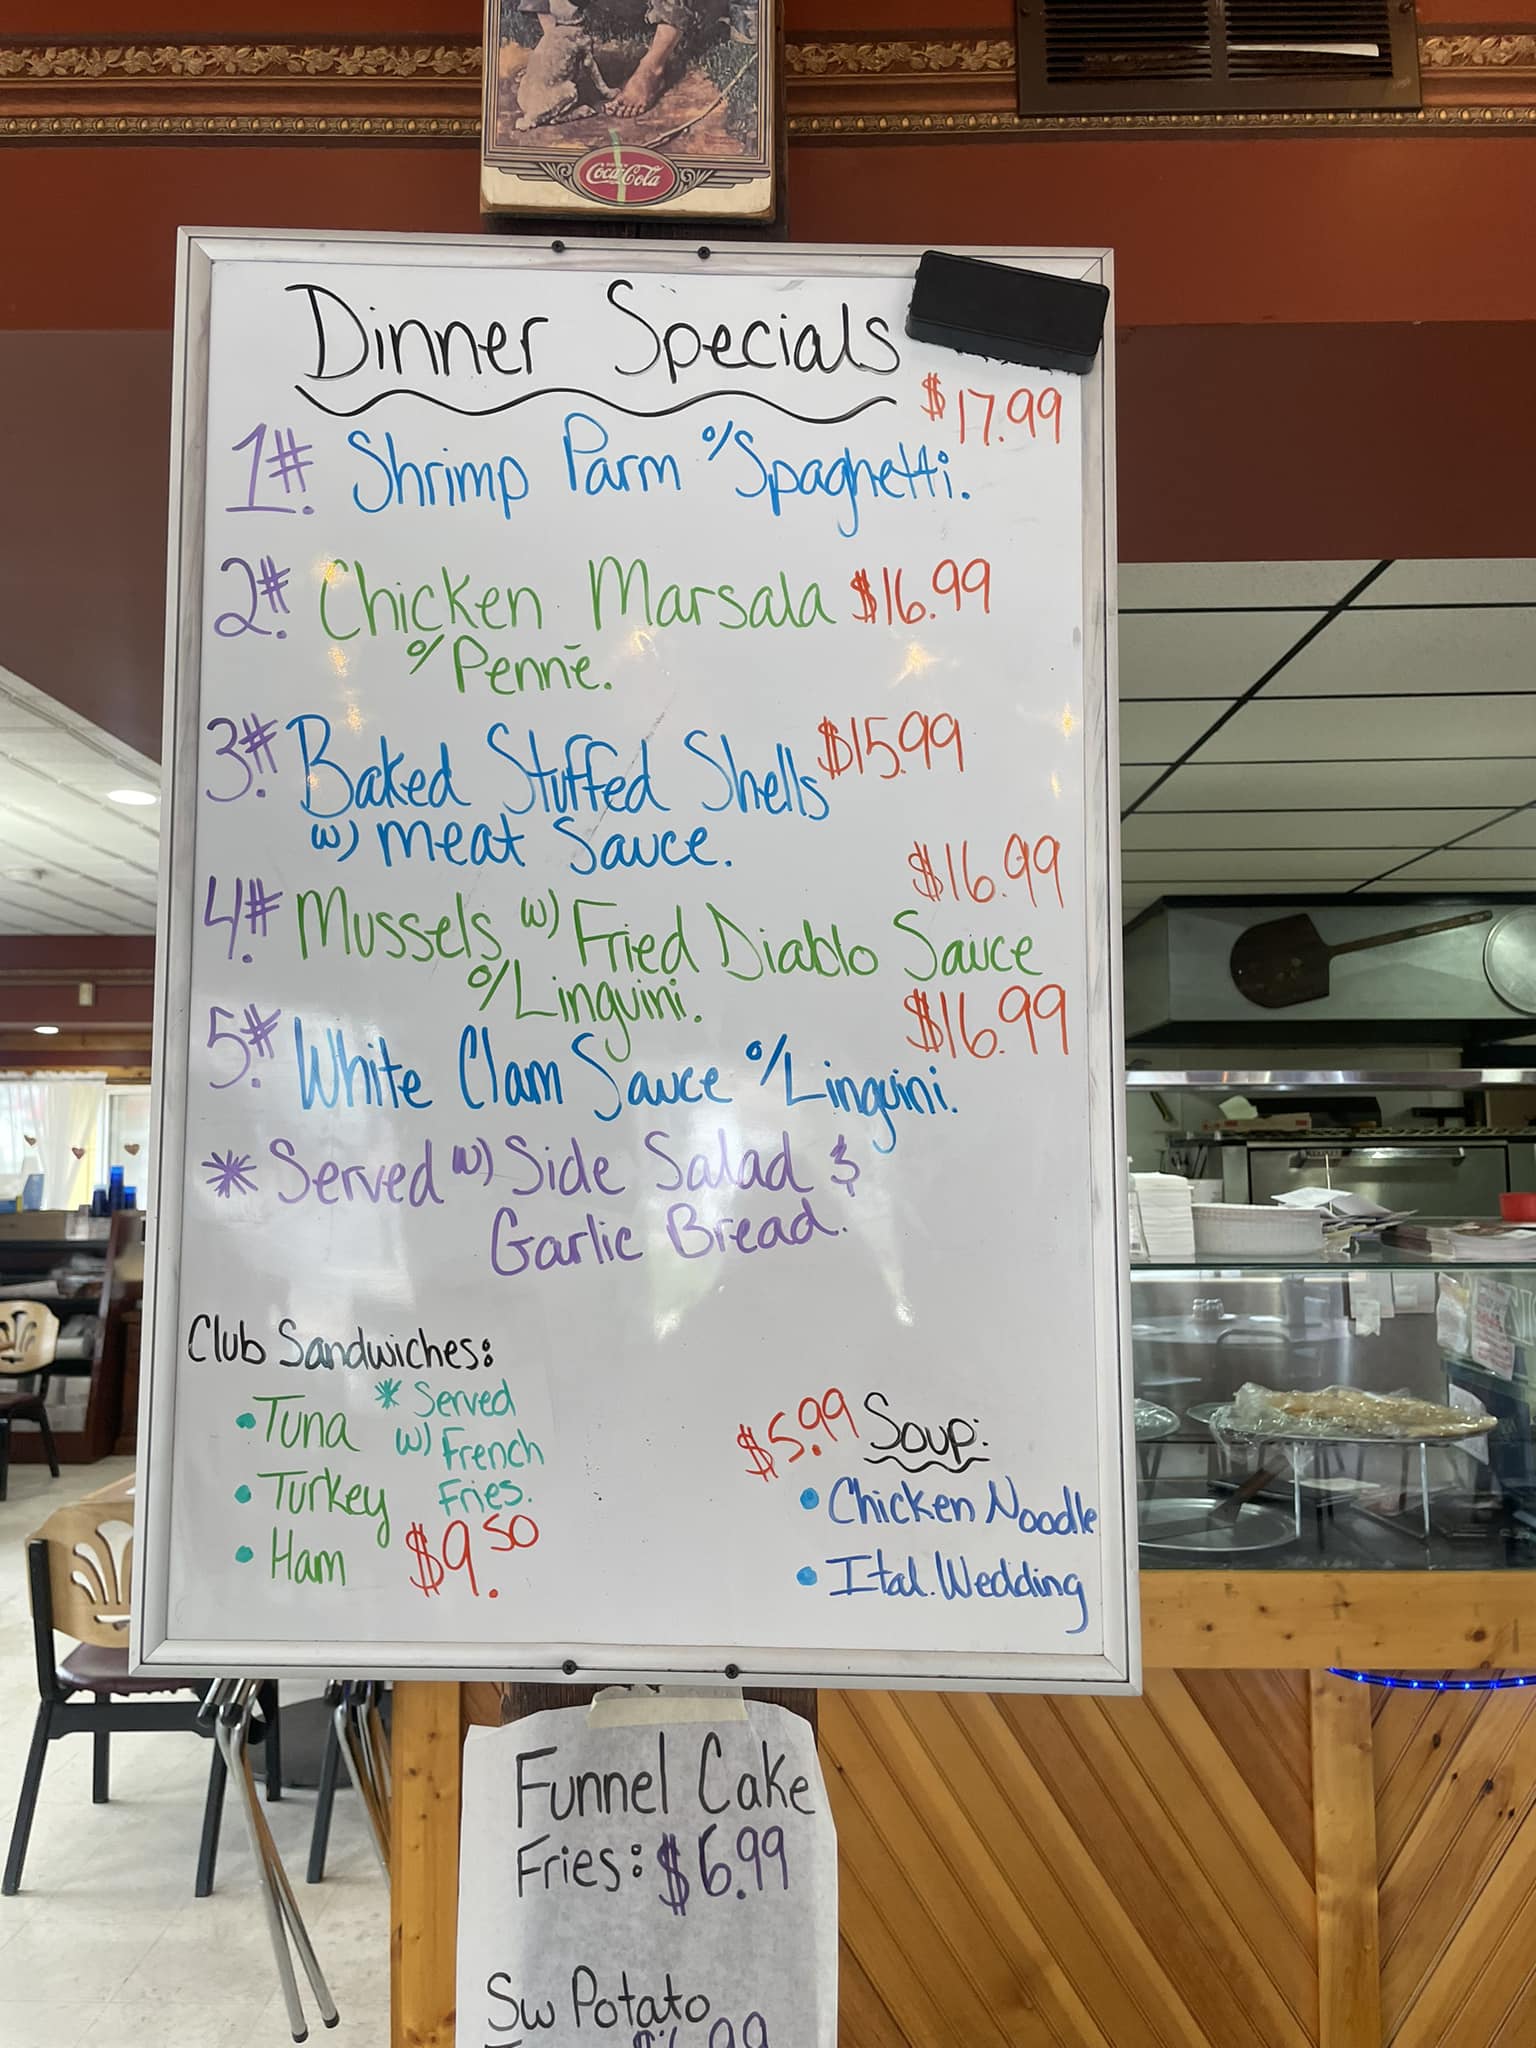 Coca-Cola
Dinner Specials
$17.99
1#. Shrimp Parm o/Spaghetti.
2#. Chicken Marsala $16.99
o/Penne.
3#. Baked Stuffed Shells $15.99
w) meat Sauce.
$16.99
4#. Mussels w) Fried Diablo Sauce
o/Linguini.
$16.99
5#. White Clam Sauce o/Linguini.
* Served w) Side Salad &
Garlic Bread.
Club Sandwiches:
• Tuna
• Turkey
• Ham
* Served
w) French
Fries.
$9.50
$5.99 Soup:
• Chicken Noodle
• Ital. Wedding
Funnel Cake
Fries: $6.99
Sw Potato